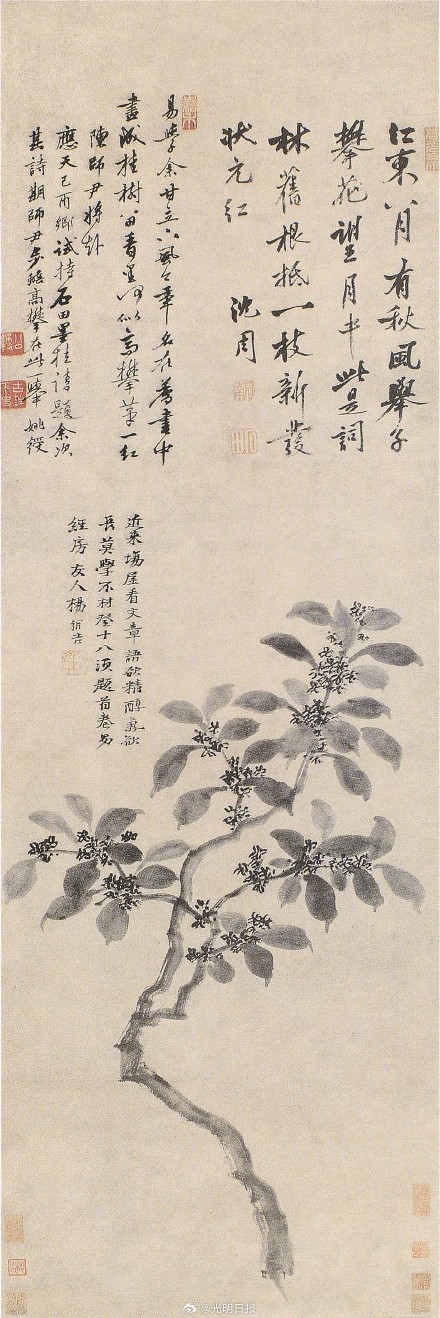 江東八月有秋風舉子
攀花望月中此是詞
林舊根柢一枝新發
狀元紅 沈周
易學余甘立下風年名在薦書中
畫成桂樹留何似高攀第一紅
陳師尹將赴
應天己酉鄉試持石田墨桂請題余次
其詩期師尹步蟾高攀在此一舉 姚綬
近來場屋看文章語欲精醇氣欲
長莫學不材登十八須題首卷
經房友人楊循吉
@光明日报